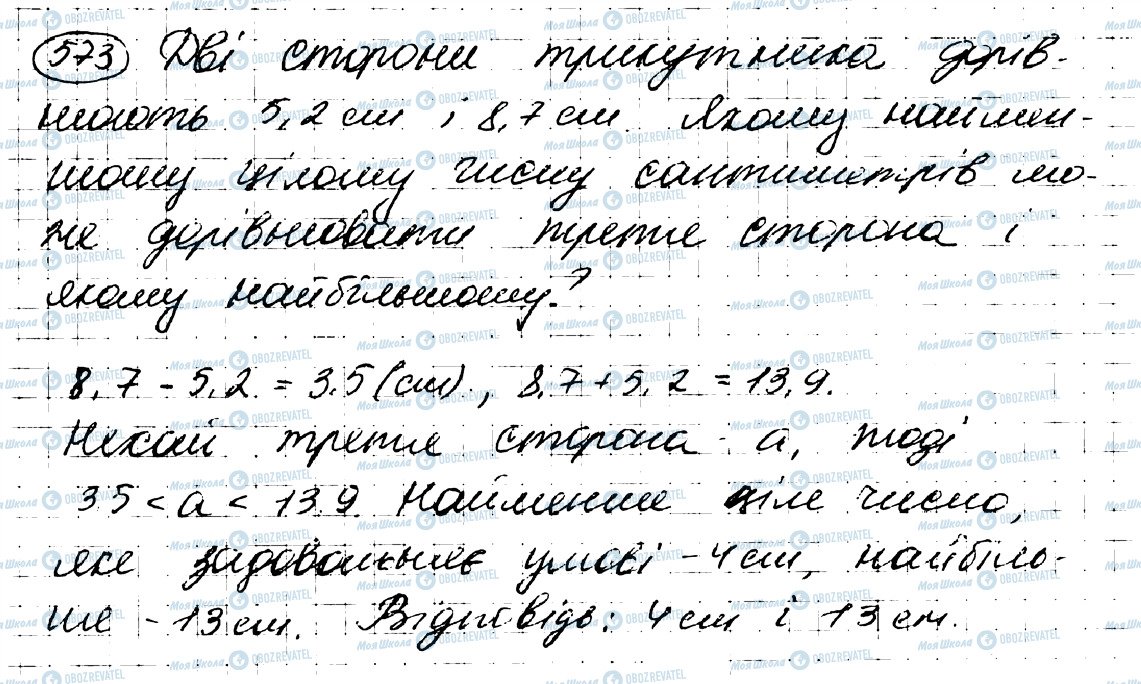 573 Дві сторони трикутника дорів-
нюють 5,2 см і 8,7 см. Якому наймен-
шому цілому числу сантиметрів мо-
же дорівнювати третя сторона і
якому найбільшому?
8,7 - 5,2 = 3,5 (см), 8,7 + 5,2 = 13,9.
Нехай третя сторона a, тоді
3,5 < a < 13,9. Найменше ціле число,
яке задовольняє умові - 4 см, найбіль-
ше - 13 см. Відповідь: 4 см і 13 см.